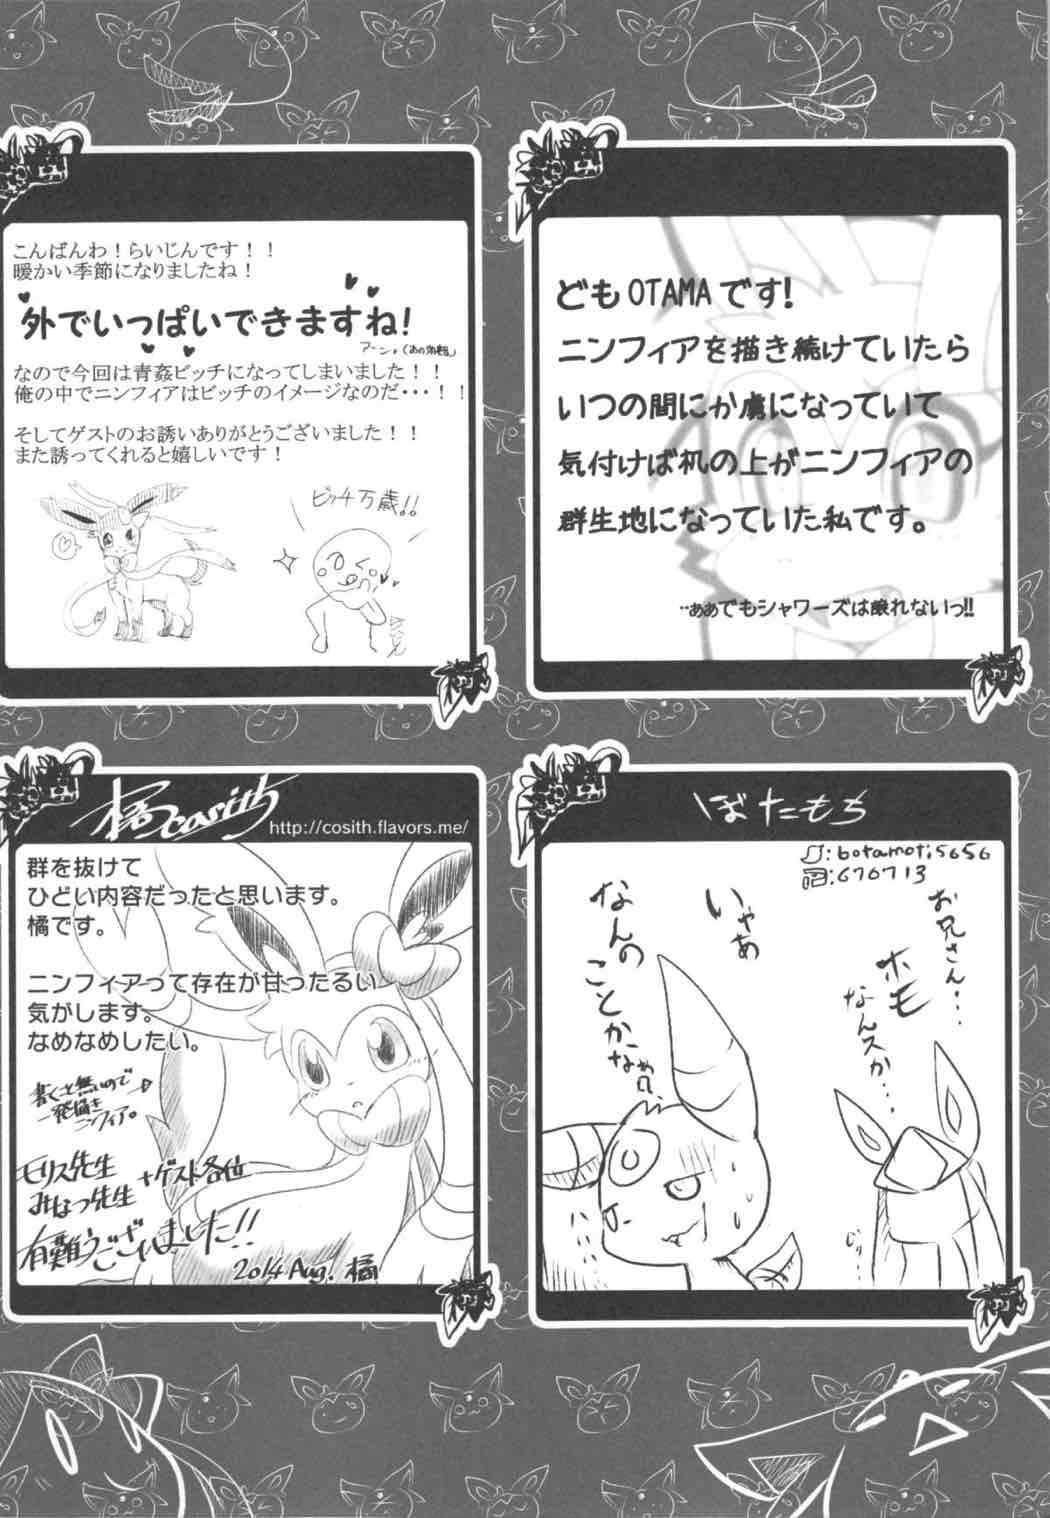 どもOTAMAです!
ニンフィアを描き続けていたら
いつの間にか虜になっていて
気付けば机の上がニンフィアの
群生地になっていた私です。
…ああでもシャワーズは譲れないっ!!
こんばんわ！らいじんです！！
暖かい季節になりましたね！
外でいっぱいできますね!
なので今回は青姦ビッチになってしまいました！！
俺の中でニンフィアはビッチのイメージなのだ・・・！！
そしてゲストのお誘いありがとうございました！！
また誘ってくれると嬉しいです！
ビッチ万歳!!
ぼたもち
:botamoti5656
:676713
お兄さん…
ホモ
なんスか…
いやあ
なんの
ことかなぁ?
橘cosith
http://cosith.flavors.me/
群を抜けて
ひどい内容だったと思います。
橘です。
ニンフィアって存在が甘ったるい
気がします。
なめなめしたい。
書くこと無いので
一発描き
ニンフィア。
モリス先生
みなつ先生
+ゲスト各位
有難うございました!!
2014 Aug. 橘